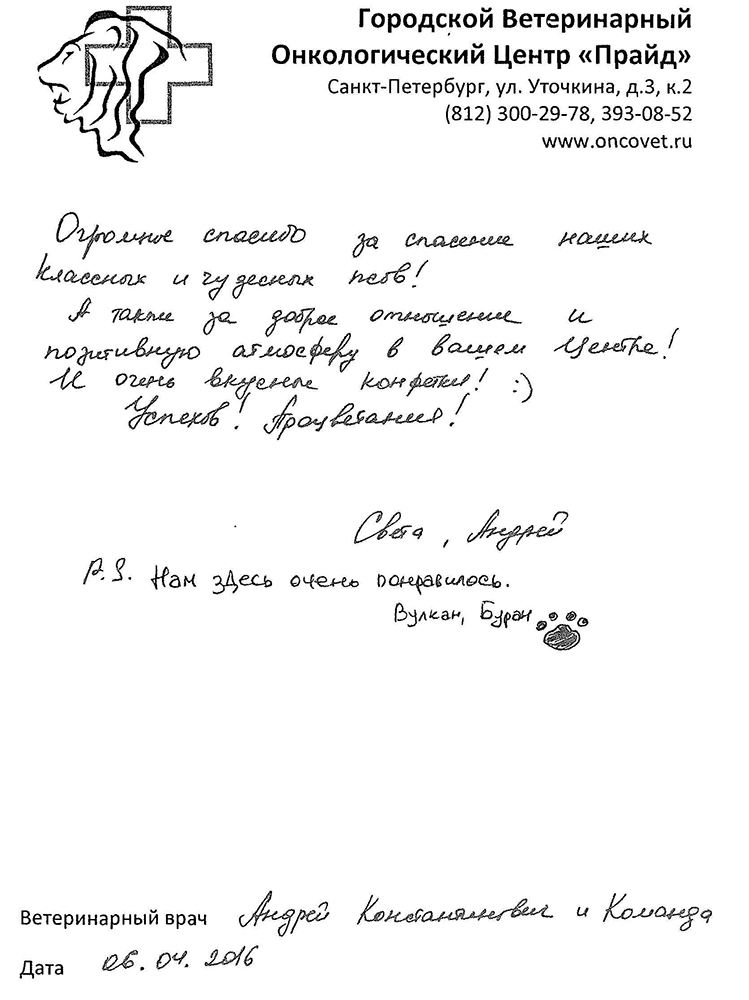 Городской Ветеринарный
Онкологический Центр «Прайд»
Санкт-Петербург, ул. Уточкина, д.3, к.2
(812) 300-29-78, 393-08-52
www.oncovet.ru
Огромное спасибо за спасение наших
классных и чудесных псов!
А также за доброе отношение и
позитивную атмосферу в вашем Центре!
И очень вкусные конфетки! :)
Успехов! Процветания!
Света, Андрей
P.S. Нам здесь очень понравилось.
Вулкан, Буран
Ветеринарный врач Андрей Константинович и Команда
Дата 06.04.2016